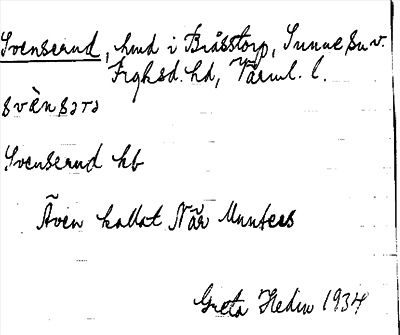 Svenserud, hmd i Bråstorp, Sunne sn v.
Fryksd. hd, Värml. l.
svὲnsərə
Svenserud kb
Även kallat När Munters
Greta Hedin 1934